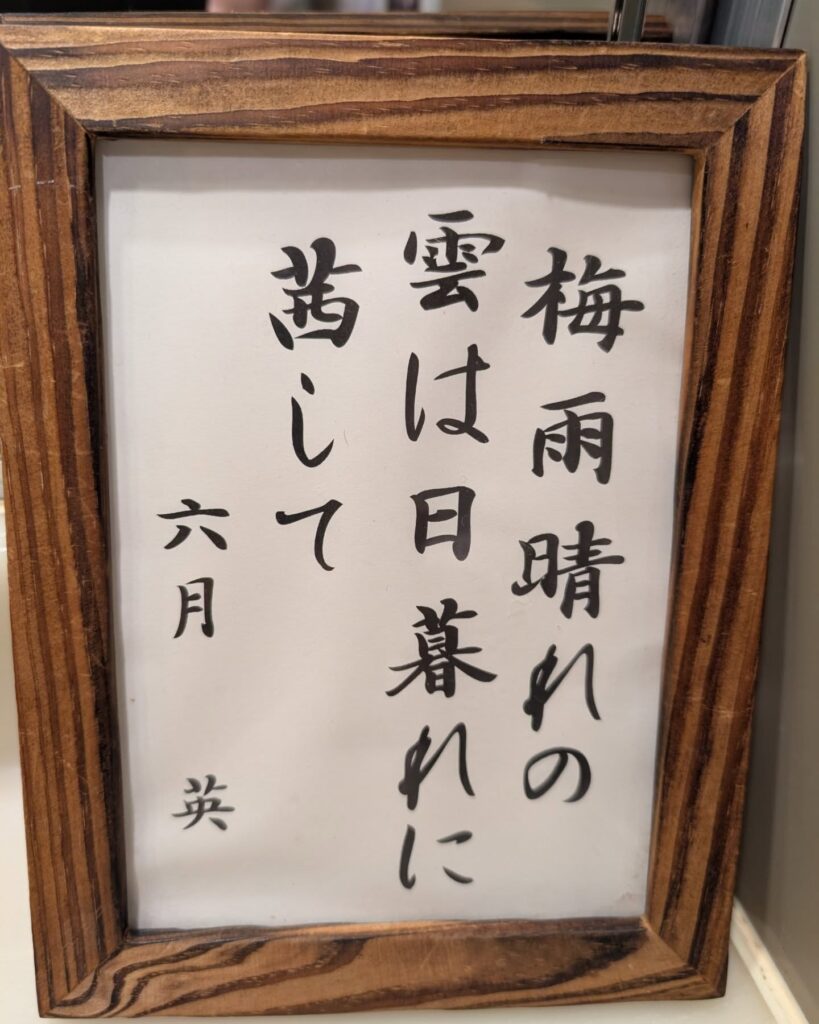 梅雨晴れの
雲は日暮れに
茜して
六月 英